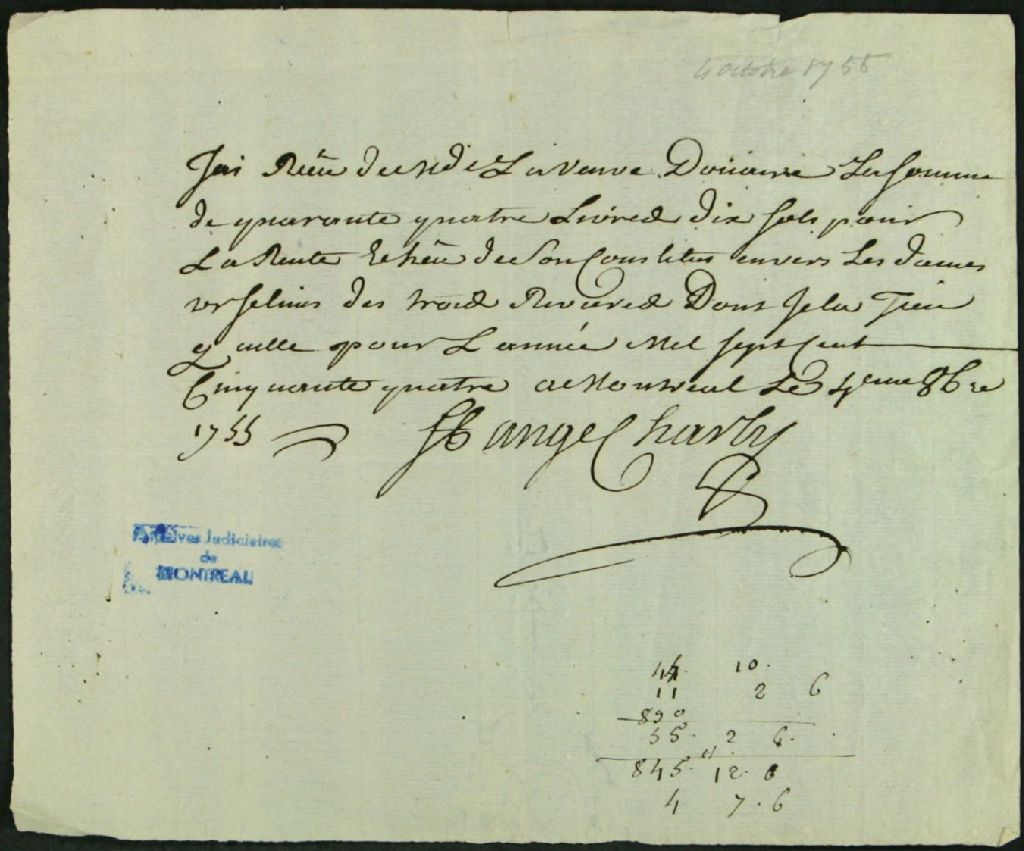 4 octobre 1755
Jai Reçu de La veuve Doüaire La somme
de quarante quatre Livred dix sols pour
La Rente Echeu de Son Constitut envers Les dames
urselines des troid Riviered Dont Je la Tien
quitte pour L'année Mil sept Cent
Cinquante quatre a Montreal Le 4eme 8bre
1755 St ange Charly
Archives Judiciaires
de
MONTREAL
44 10.
11 2 6
890
55. 2 6.
845. 12. 6
4 7. 6